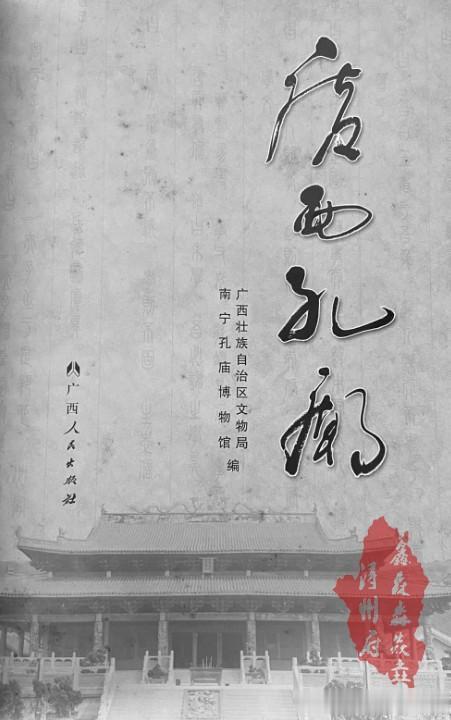 廣西孔廟
广西壮族自治区文物局
南宁孔庙博物馆
编
广西人民出版社
鑫森淼焱垚
浔州府